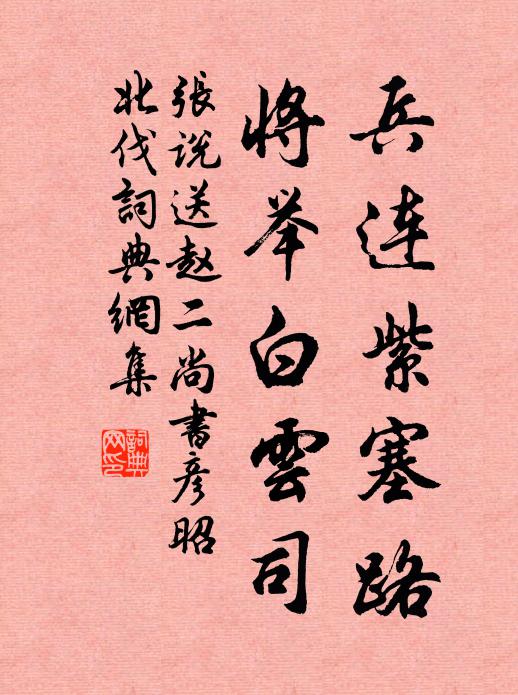 兵连紫塞路
将举白雲司
張说送赵二尚書彦昭
北伐詞典網集
詞典网印